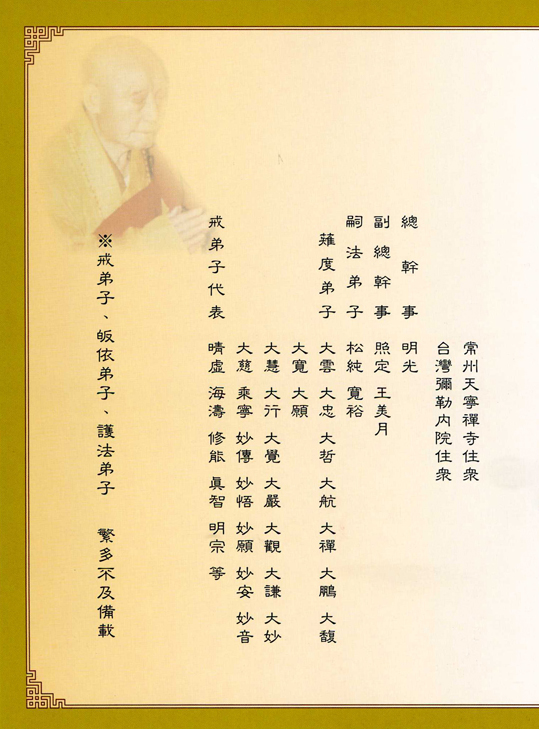 常州天寧禪寺住衆
台灣彌勒內院住衆
總幹事 明光
副總幹事 照定 王美月
嗣法弟子 松純 寬裕
薙度弟子 大雲 大忠 大哲 大航 大禪 大鵬 大馥
大寬 大願
大慧 大行 大覺 大嚴 大觀 大謙 大妙
大慈 乘寧 妙傳 妙悟 妙願 妙安 妙音
戒弟子代表 晴虛 海濤 修能 眞智 明宗 等
※戒弟子、皈依弟子、護法弟子 繁多不及備載